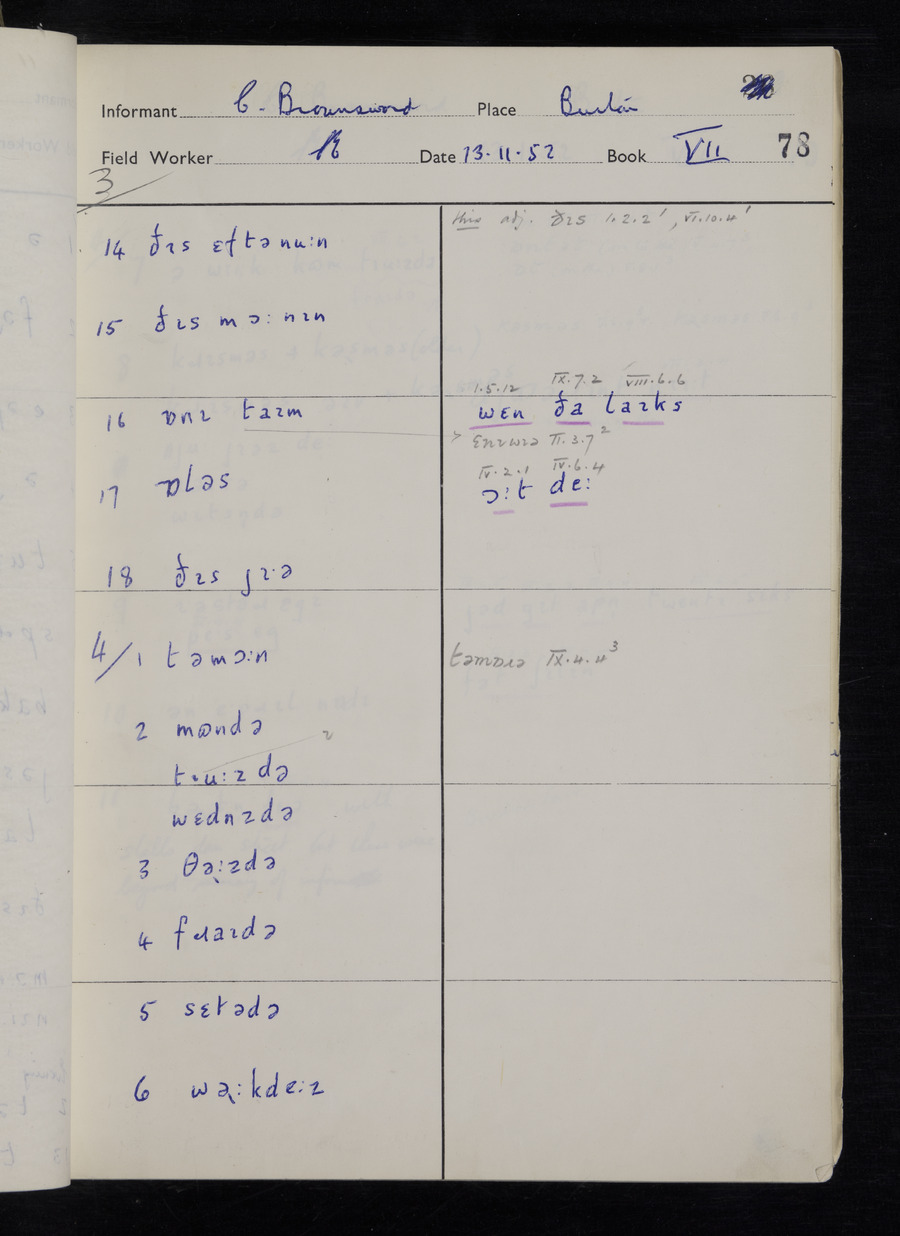 Informant C. Brownsword Place Burton
Field Worker Date 13.11.52 Book VII 78
3
this adj. ðɪs 1.2.2', VI.10.4'
14 ðɪs ɛftənuːn
15 ðɪs mɔːnɪn
1.5.12 IX.7.2 VIII.6.6
16 ɒnɪ taɪm wɛn ða laɪks
II.3.7²
IV.2.1 IV.6.4
17 ɒləs ɔːt deː
18 ðɪs jɪˑə
4/1 təmɔːn təmɒɹə IX.4.4³
2 mɷndə
tɪuːzdə
wɛdnzdə
3 θəːzdə
4 fɹaɪdə
5 sɛtədə
6 wəːkdeːz